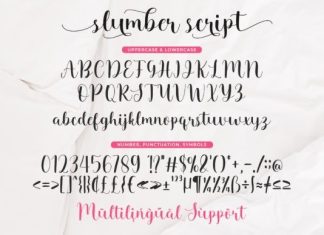 slumber script
UPPERCASE & LOWERCASE
ABCDEFGHIJKLMN
OPQRSTUVWXYZ
abcdefghijklmnopqrstuvwxyz
NUMBER, PUNCTUATION, SYMBOLS
0123456789 !?"#$%&'()*+,-./:;@
Multilingual Support